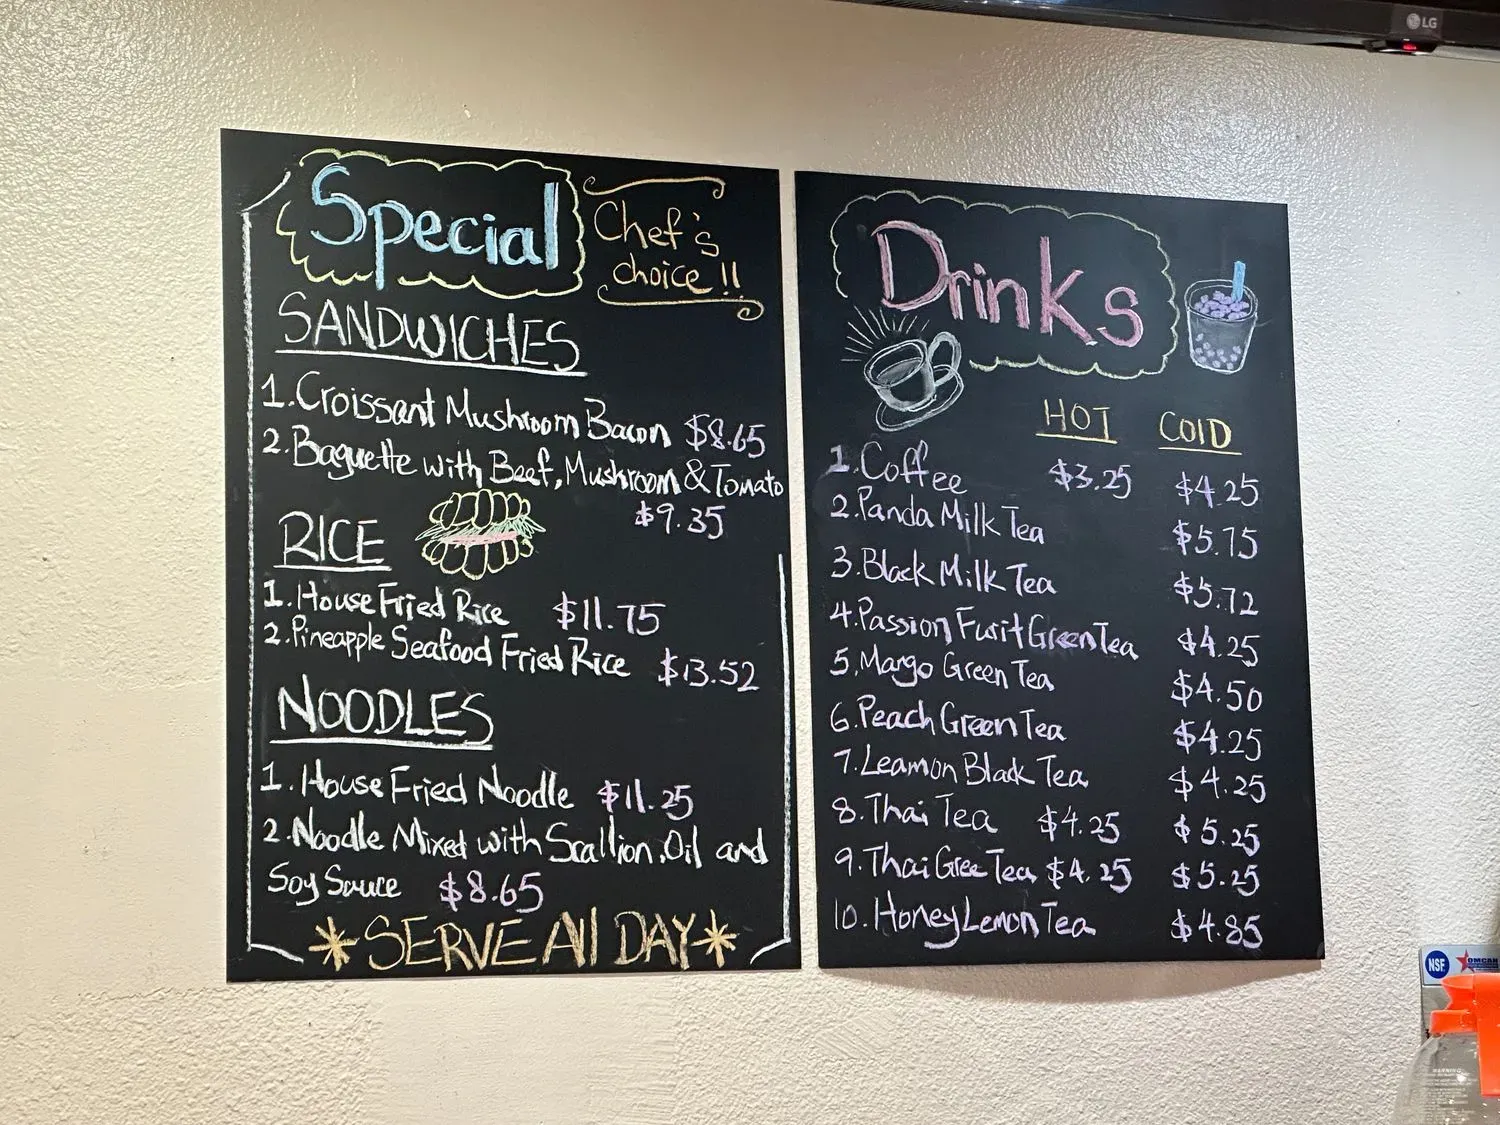 LG
Special
Chef's
choice!!
SANDWICHES
1. Croissant Mushroom Bacon $8.65
2. Baguette with Beef, Mushroom & Tomato
$9.35
RICE
1. House Fried Rice $11.75
2. Pineapple Seafood Fried Rice $13.52
NOODLES
1. House Fried Noodle $11.25
2. Noodle Mixed with Scallion, Oil and
Soy Sauce $8.65
*SERVE All DAY*
Drinks
HOT COlD
1. Coffee $3.25 $4.25
2. Panda Milk Tea $5.75
3. Black Milk Tea $5.72
4. Passion Furit Green Tea $4.25
5. Margo Green Tea $4.50
6. Peach Green Tea $4.25
7. Leamon Black Tea $4.25
8. Thai Tea $4.25 $5.25
9. Thai Gree Tea $4.25 $5.25
10. Honey Lemon Tea $4.85
NSF OMCAN
WARNING